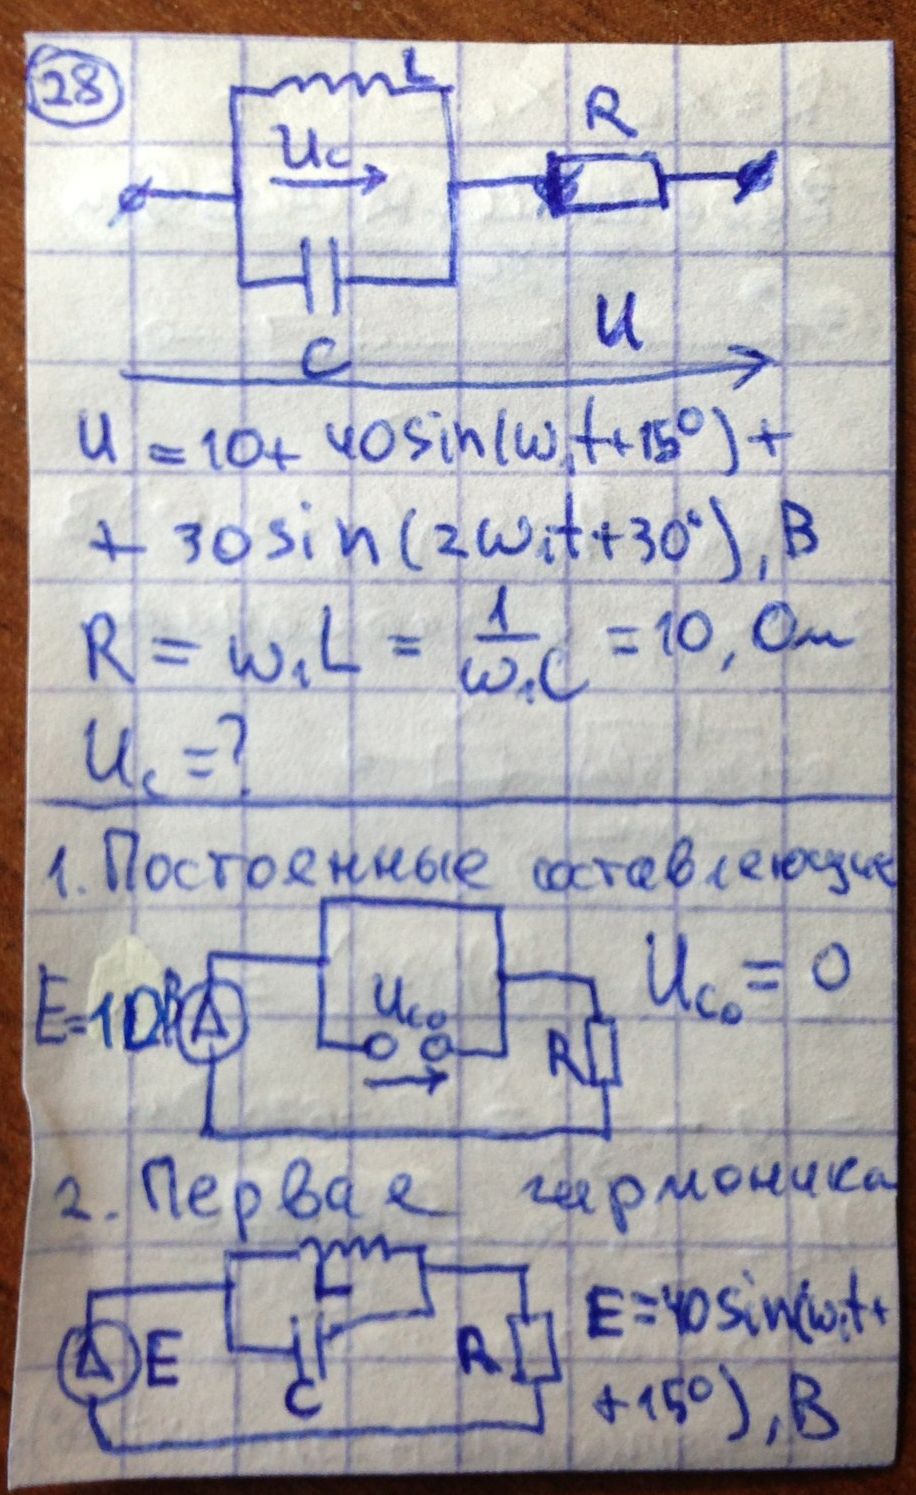 28
L
Uc
R
C
U
U = 10 + 40sin(ω₁t+15°) +
+ 30sin(2ω₁t+30°), В
R = ω₁L = 1/ω₁C = 10, Ом
Uc = ?
1. Постоянные составляющие
E=10В
Uc₀
R
Uc₀ = 0
2. Первая гармоника
L
E
C
R
E=40sin(ω₁t+
+15°), В